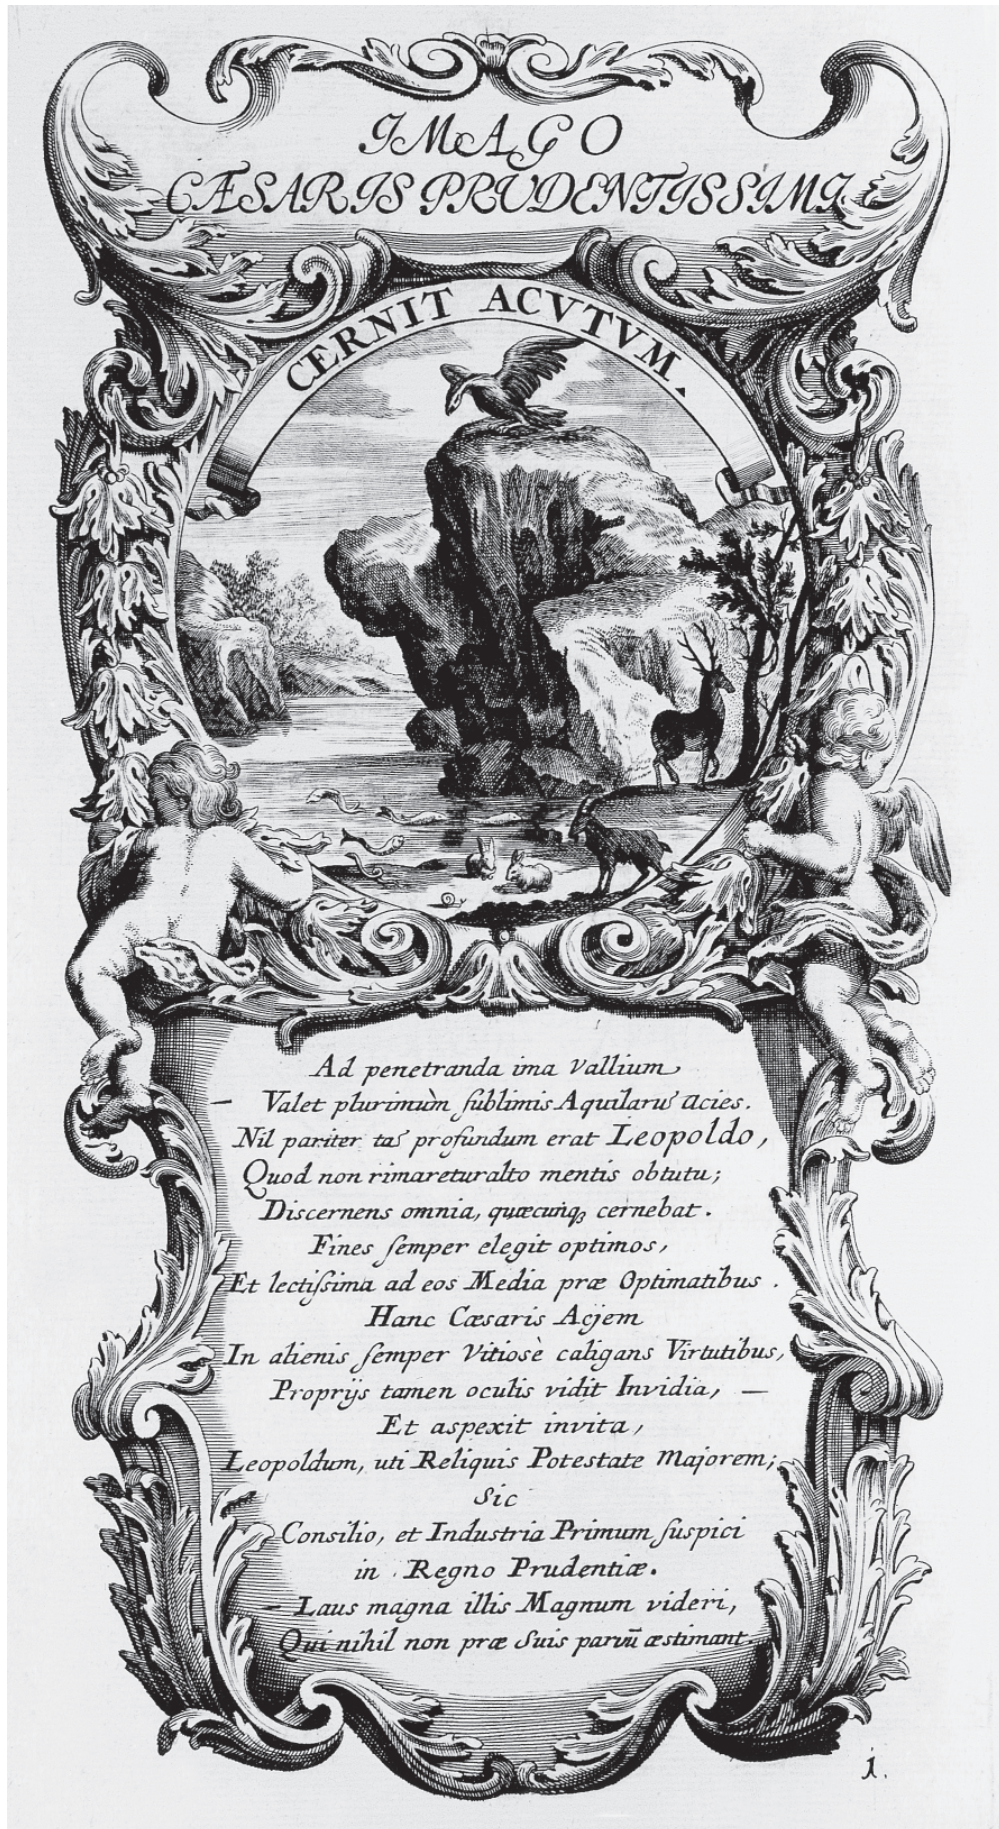 IMAGO
CÆSARIS PRUDENTISSIMI
CERNIT ACVTVM.
Ad penetranda ima Vallium
Valet plurimùm sublimis Aquilarũ acies.
Nil pariter tã profundum erat Leopoldo,
Quod non rimaretur alto mentis obtutu;
Discernens omnia, quæcunqꝫ cernebat.
Fines semper elegit optimos,
Et lectissima ad eos Media præ Optimatibus.
Hanc Cæsaris Acjem
In alienis semper Vitiosè caligans Virtutibus,
Proprijs tamen oculis vidit Invidia, —
Et aspexit invita,
Leopoldum, uti Reliquis Potestate Majorem;
Sic
Consilio, et Industria Primum suspici
in Regno Prudentiæ.
Laus magna illis Magnum videri,
Qui nihil non præ Suis parvũ æstimant.
1.